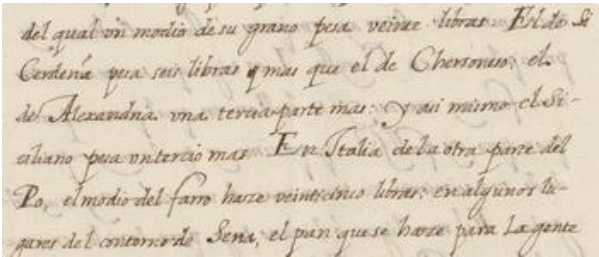 del qual un modio de su grano pesa veinte libras. El de
Cerdeña pesa seis libras y mas que el de Chersoneso; el
de Alexandria una tercia parte mas: y asi mismo el Si-
ciliano pesa un tercio mas. En Italia de la otra parte del
Po, el modio del farro haze veinticinco libras; en algunos lu-
gares del contorno de Sena, el pan que se haze para La gente